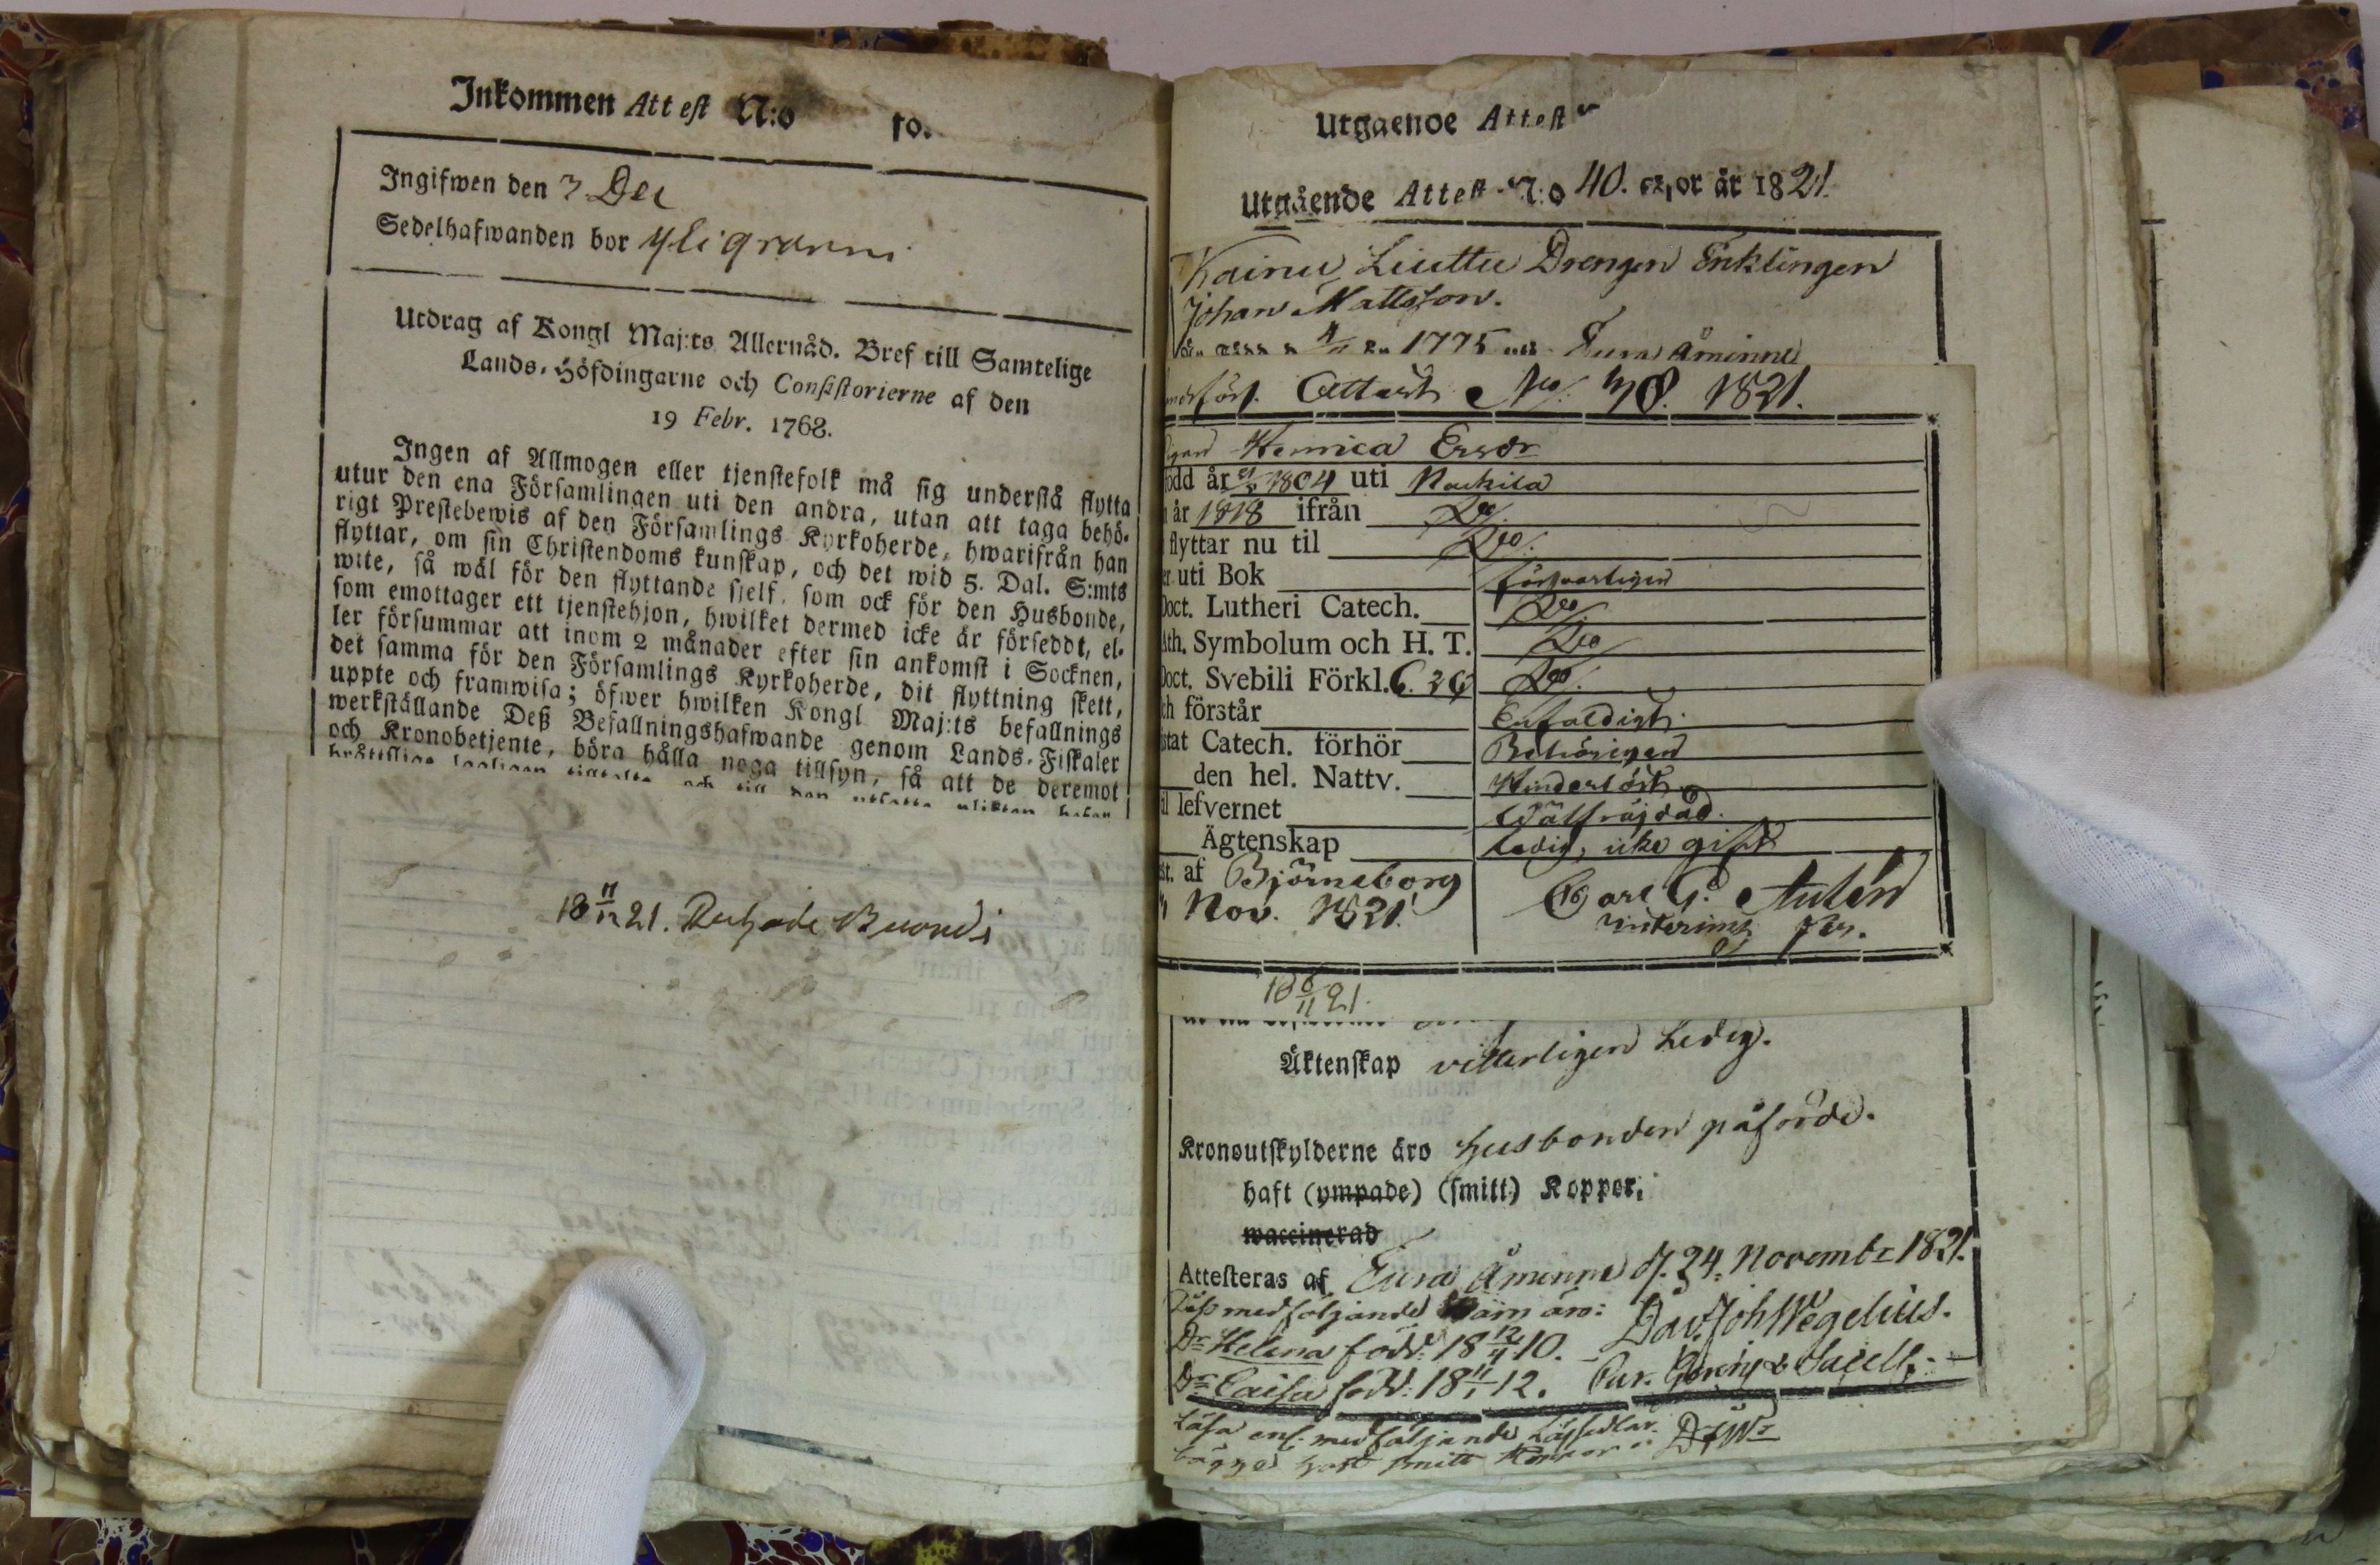 Inkommen Attest N:o
Ingifwen den 3 Dec
Sedelhafwanden bor
Utdrag af Kongl Maj:ts Allernåd. Bref till Samtelige
Lands-Höfdingarne och Consistorierne af den
19 Febr. 1768.
Ingen af Allmogen eller tjenstefolk må sig understå flytta
utur den ena Församlingen uti den andra, utan att taga behö-
rigt Prestebewis af den Församlings Kyrkoherde, hwarifrån han
flyttar, om sin Christendoms kunskap, och det wid 5. Dal. S:mts
wite, så wäl för den flyttande sjelf, som ock för den Husbonde,
som emottager ett tjenstehjon, hwilket dermed icke är försedt, el-
ler försummar att inom 2 månader efter sin ankomst i Socknen,
det samma för den Församlings Kyrkoherde, dit flyttning skett,
uppte och framwisa; öfwer hwilken Kongl Maj:ts befallnings
werkställande Deß Befallningshafwande genom Lands-Fiskaler
och Kronobetjente, böra hålla noga tillsyn, så att de deremot
18 11/12 21.
Utgaende Attest
Utgående Attest N:o 40. för år 1821.
Drengen Enklingen
Johan Mattsson.
1775 Eura Åminne
Attest No. 1821.
Henrica Ersdr
född år 1804 uti Nackila
år 1818 ifrån Do.
flyttar nu til Do.
uti Bok försvarligen
Doct. Lutheri Catech. Do.
Ath. Symbolum och H. T. Do
Doct. Svebili Förkl. Do.
ch förstår Enfaldigt.
stat Catech. förhör Behörigen
den hel. Nattv. Hinderlöst
il lefvernet Wälfräjdad.
Ägtenskap Ledig, icke gift
st. af Björneborg
Nov. 1821.
Carl G.
interims
18 6/11 21.
Äktenskap vitterligen Ledig.
Kronoutskylderne äro husbonden påförde.
haft (ympade) (smitt) Koppor,
waccinerad
Attesteras af Eura Åminne d. 24. Novembr 1821.
medföljande Barn äro: Dav. Joh Wegelius.
Dr Helena född: 18 12/11 10.
Dr Caisa född: 18 11/1 12.
Läsa enl. medföljande
bägge haft smitt Koppor